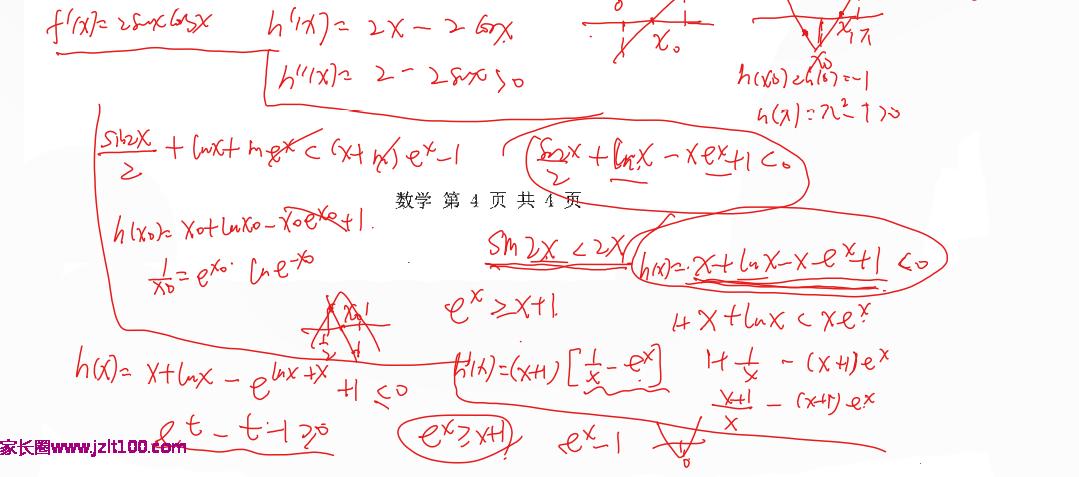 f'(x)= 2sinxcosx
h'(x)= 2x - 2cosx
h''(x)= 2 - 2sinx ≥0
0 1
x₀
x₁ π
x₀
h(x₀)<h(0)=-1
h(π)=π²-1>0
sin2x/2 + lnx + meˣ < (x+m)eˣ-1
sin2x/2 + lnx - xeˣ+1<0
数学 第 4 页 共 4 页
h(x₀)= x₀+lnx₀-x₀eˣ⁰+1.
1/x₀=eˣ⁰. lne⁻ˣ⁰
sin2x<2x
h(x)= x+lnx-x-eˣ+1<0
eˣ≥x+1.
1+x+lnx<xeˣ
h(x)= x+lnx-e^(lnx+x)+1≤0
h'(x)=(x+1)[1/x-eˣ]
1+1/x-(x+1)eˣ
(x+1)/x-(x+1)eˣ
eᵗ-t-1≥0
eˣ≥x+1
eˣ-1
0
家长圈www.jzlt100.com